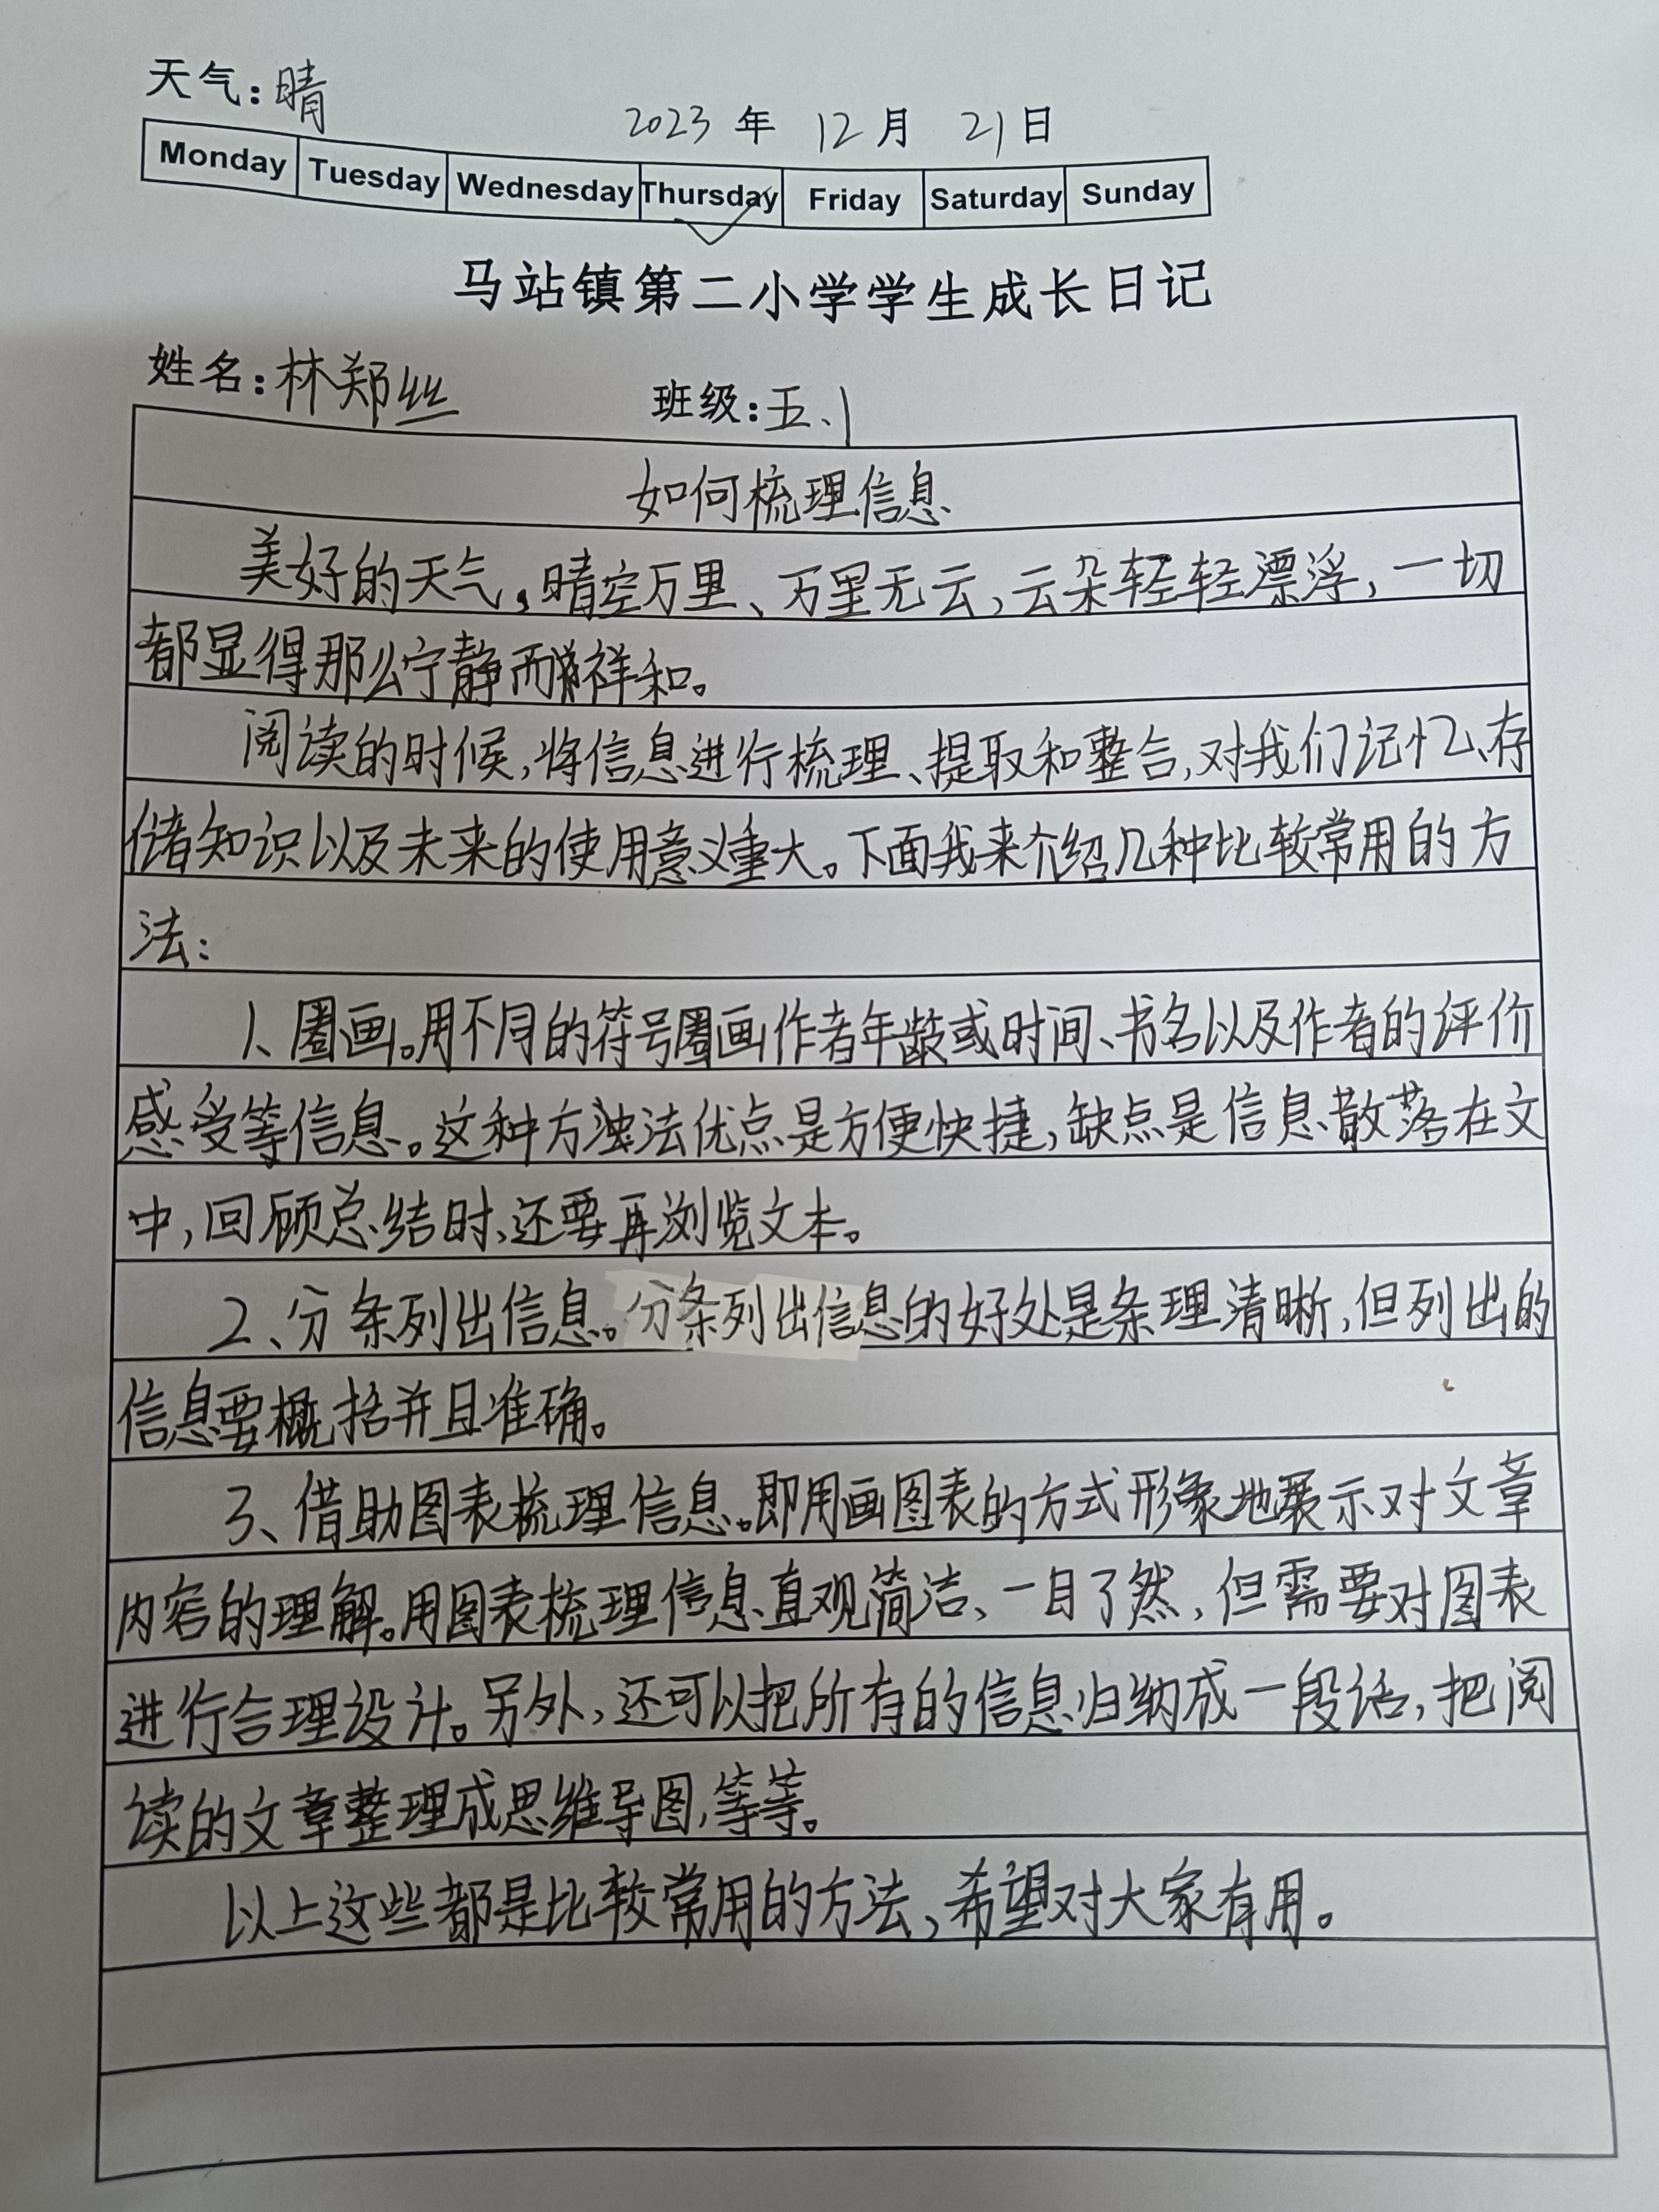 天气:晴
2023年 12月 21日
Monday Tuesday Wednesday Thursday Friday Saturday Sunday
马站镇第二小学学生成长日记
姓名:林郑丝 班级:五、1
如何梳理信息
美好的天气,晴空万里、万里无云,云朵轻轻漂浮,一切
都显得那么宁静而祥和。
阅读的时候,将信息进行梳理、提取和整合,对我们记忆、存
储知识以及未来的使用意义重大。下面我来介绍几种比较常用的方
法:
1、圈画。用不同的符号圈画作者年龄或时间、书名以及作者的评价
感受等信息。这种方法优点是方便快捷,缺点是信息散落在文
中,回顾总结时、还要再浏览文本。
2、分条列出信息。分条列出信息的好处是条理清晰,但列出的
信息要概括并且准确。
3、借助图表梳理信息。即用画图表的方式形象地展示对文章
内容的理解。用图表梳理信息直观简洁、一目了然,但需要对图表
进行合理设计。另外,还可以把所有的信息归纳成一段话,把阅
读的文章整理成思维导图,等等。
以上这些都是比较常用的方法,希望对大家有用。